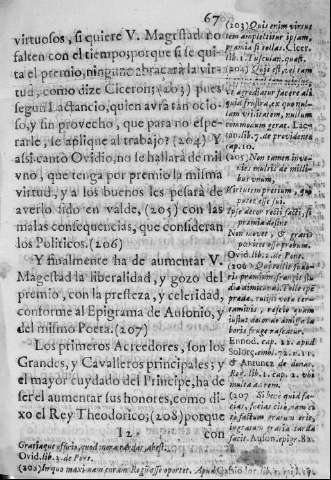 67
virtuosos, si quiere V. Magestad no
falten con el tiempo; porque si se qui-
ta el premio, ninguno abraçarà la vir-
tud, como dize Ciceron; (203) pues
segun Lactancio, quien avrà tan ocio-
so, y sin provecho, que para no espe-
rarle, se aplique al trabajo? (204) Y
assi cantò Ovidio, no se hallarà de mil
vno, que tenga por premio la misma
virtud, y a los buenos les pesarà de
averlo sido en valde, (205) con las
malas consequencias, que consideran
los Politicos. (206)
Y finalmente ha de aumentar V.
Magestad la liberalidad, y gozo del
premio, con la presteza, y celeridad,
conforme al Epigrama de Ausonio, y
del mismo Poeta. (207)
Los primeros Acreedores, son los
Grandes, y Cavalleros principales; y
el mayor cuydado del Principe, ha de
ser el aumentar sus honores, como di-
xo el Rey Theodorico; (208) porque
I 2 con
(203) Quis enim virtu
tem amplectitur ipsam,
præmia si tollas. Cicer.
lib. 1. Tusculan. quæst.
(204) Quis est, tam
ve agrediatur facere ali
quid frustra, ex quo nul-
lam vtilitatem, nullum
commodum gerat. Lac-
tan. lib. 7. de providentia
cap. 10.
(205) Non tamen inve-
nies multis de milli-
bus vnum,
Virtutem pretium, qui
putet esse sui.
Ipse decor recti facti, si
præmia desint
Non movet, & gratis
pœnitet esse probum.
Ovid. lib. 2. de Pont.
Ennod. cap. 22. apud
Solorç. emb. 72. n. 11.
& Antunez de donat.
Reg. lib. 1. cap. 2. vbi
multa ac rem.
(207) Si bene quid fa-
cias, facias cito, nam ci
to factum gratum erit,
ingratum gratia tarda
facit. Auson. epigr. 82.
Ovid. lib. 3. de Pont.